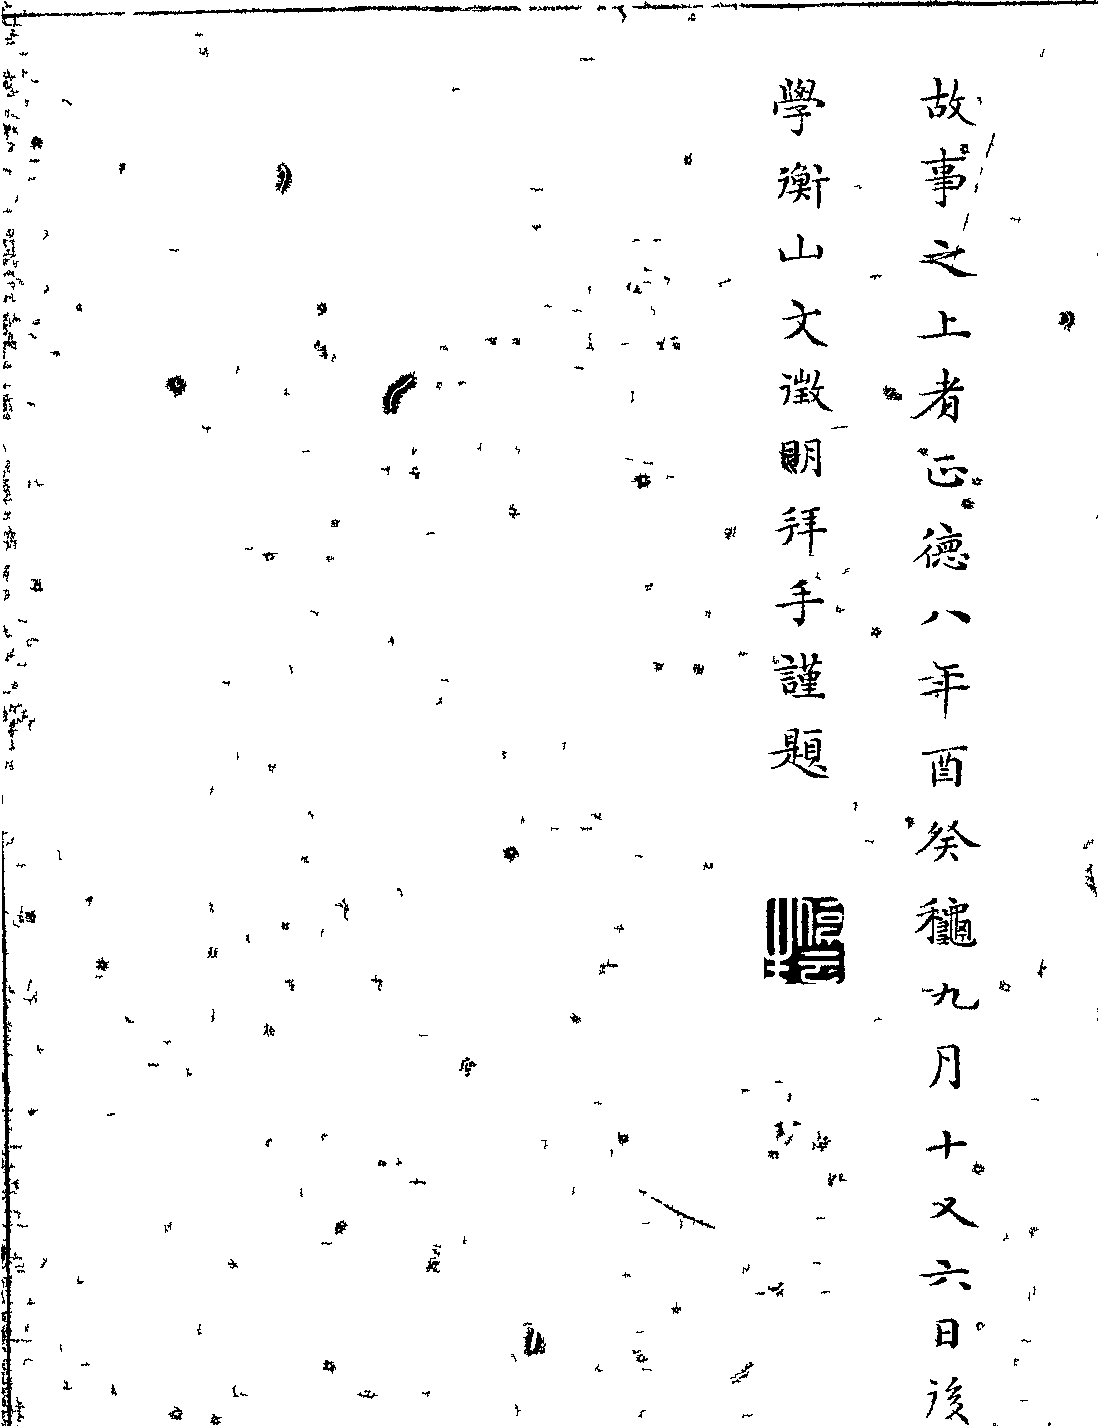 故事之上者正德八年酉癸龝九月十又六日後
學衡山文徵明拜手謹題